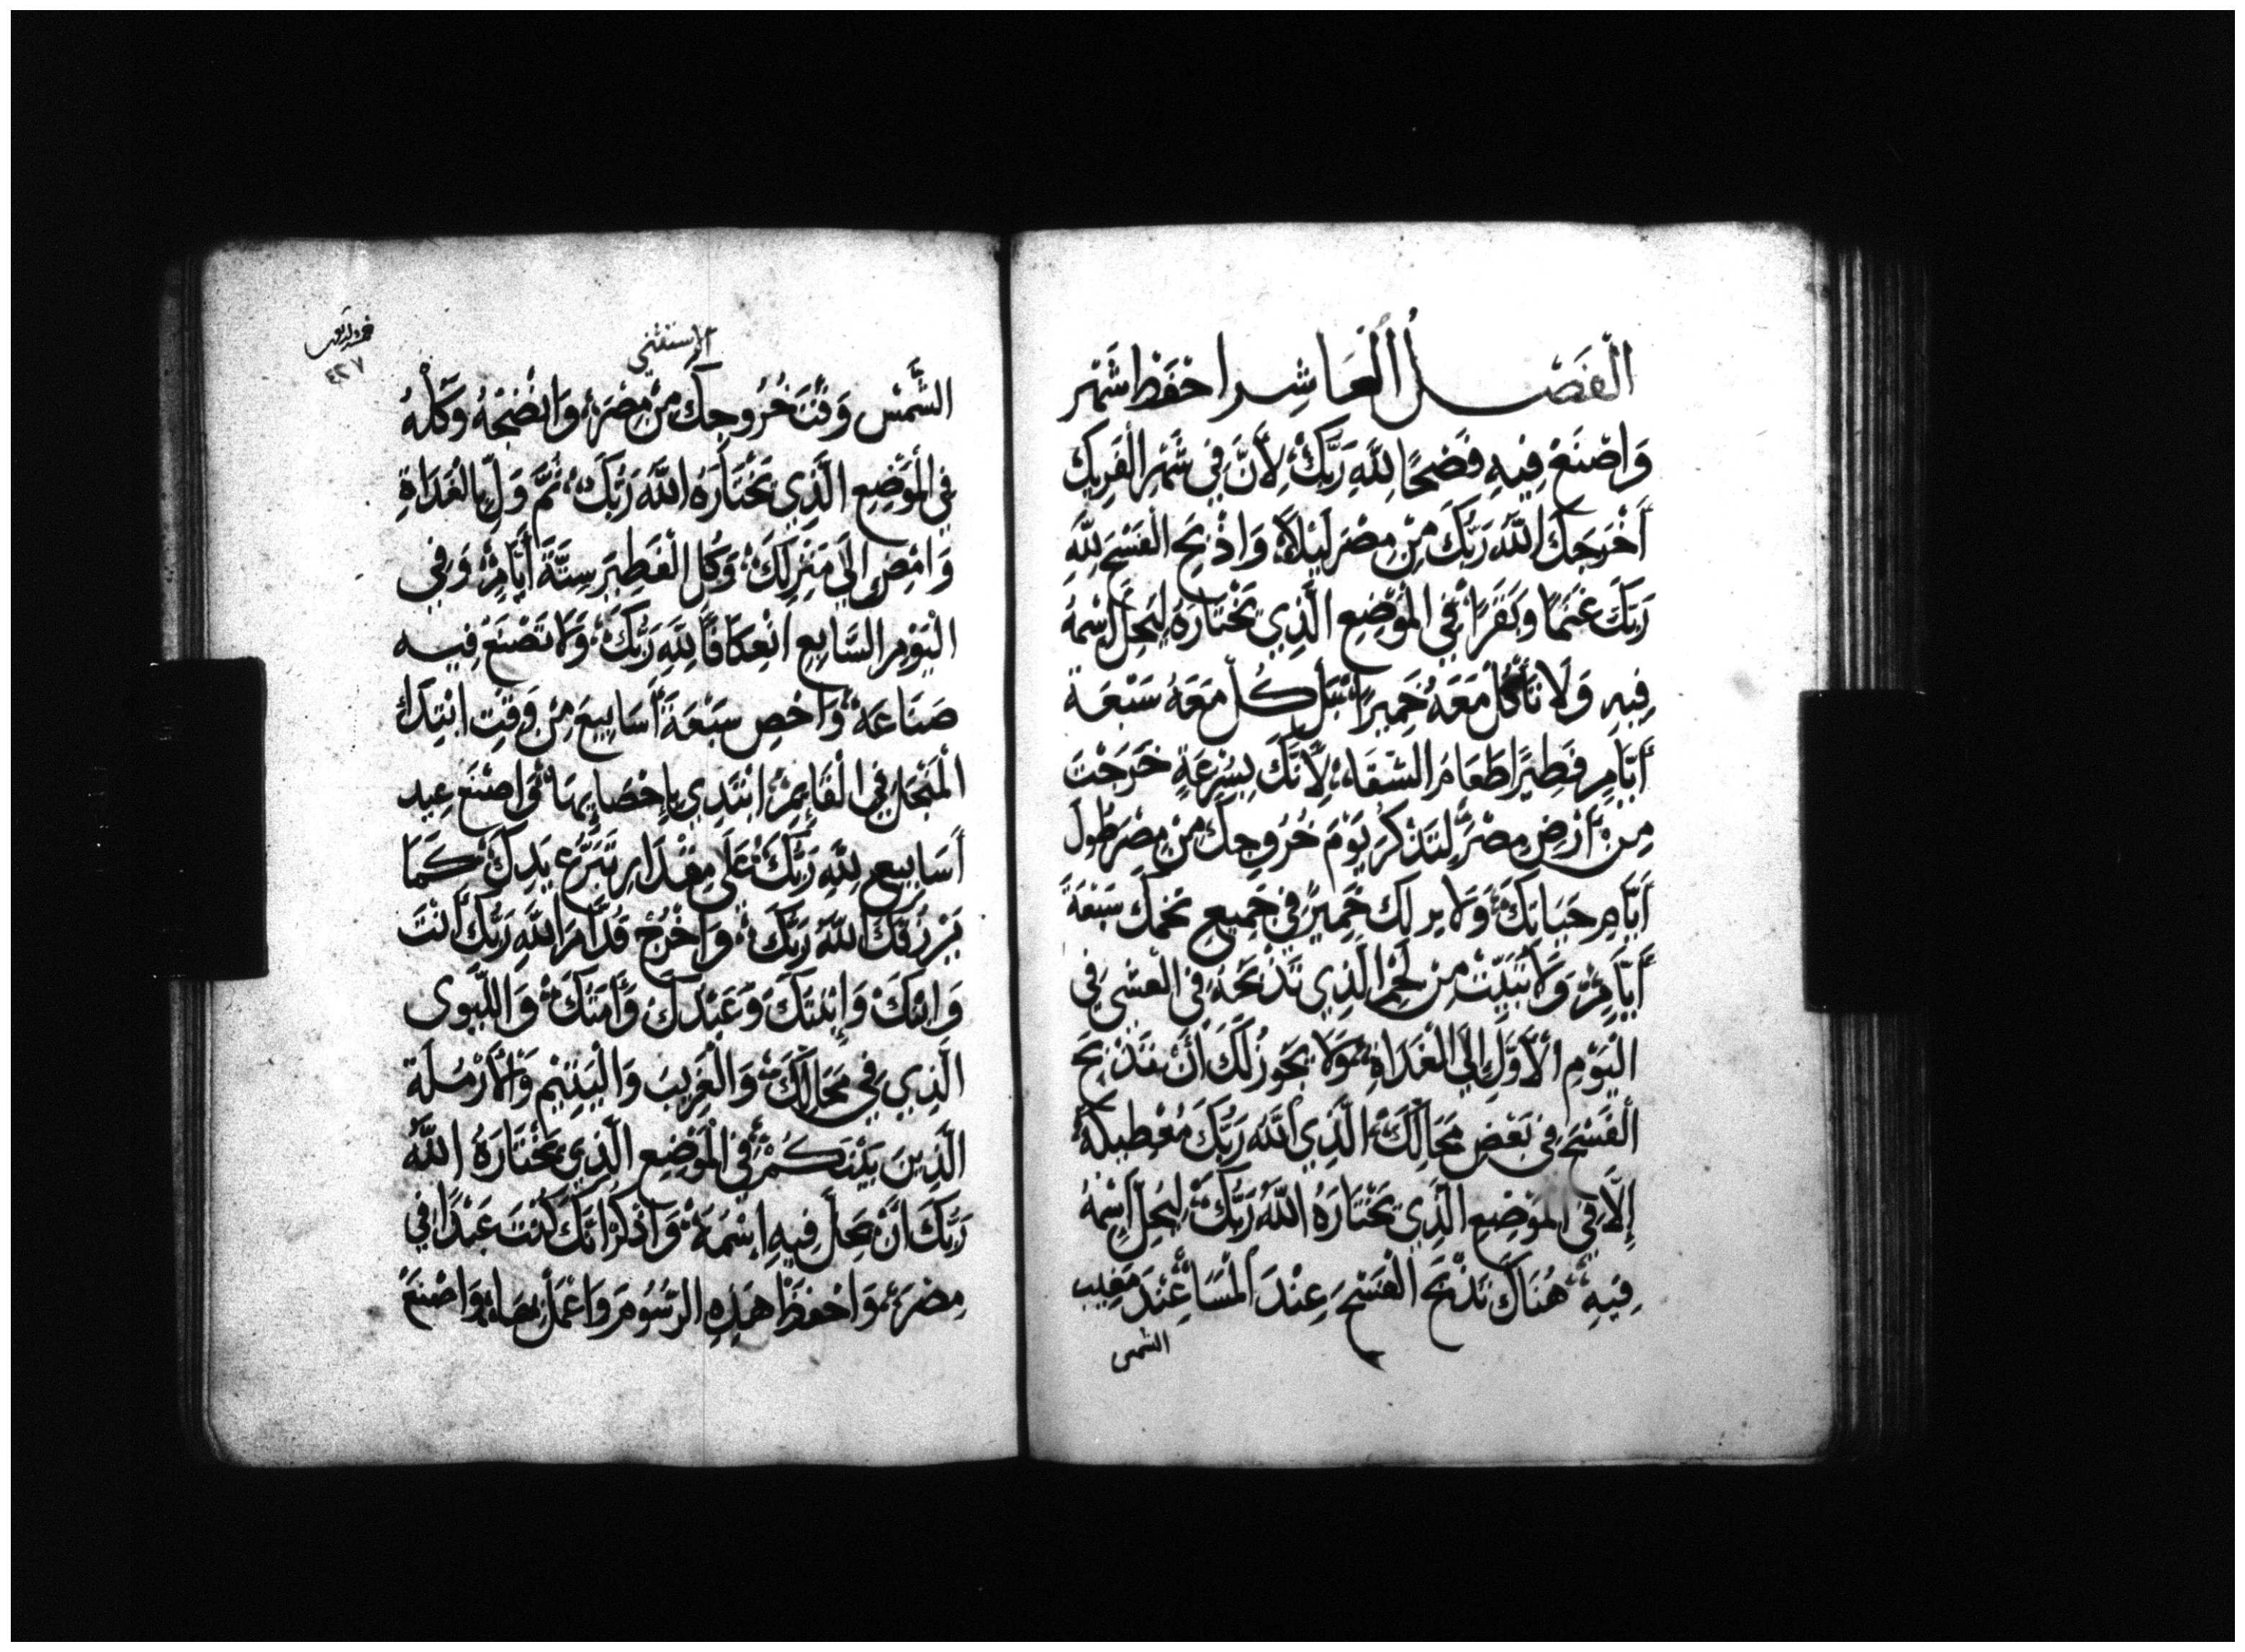 الْفَصْل الْعَاشِر احْفَظْ شَهْر
وَاصْنَعْ فِيهِ فَضْحًا لِلّهِ رَبِّكَ لِأَنَّ فِي شَهْرِ الْفَرِيكِ
أَخْرَجَكَ اللّهُ رَبُّكَ مِنْ مِصْرَ لَيْلاً وَاذْبَحِ الْفَسْحَ لِلّهِ
رَبِّكَ غَنَمًا وَبَقَرًا فِي الْمَوْضِعِ الَّذِي يَخْتَارَهُ لِيَحِلَّ اسْمُهُ
فِيهِ وَلَا تَأْكُلْ مَعَهُ خَمِيرًا بَلْ كُلْ مَعَهُ سَبْعَة
أَيَّامٍ فَطِيرًا طَعَامَ الشَقَاءِ لِأَنَّكَ بِسُرْعَةٍ خَرَجْتَ
مِنْ أَرْضِ مِصْرَ لِتَذْكُرَ يَوْمَ خُرُوجِكَ مِنْ مِصْرَ طُولَ
أَيَّامِ حَيَاتِكَ وَلَا يرَ لَكَ خَمِيرٌ فِي جَمِيعِ تخمك سَبْعَةَ
أَيَّامٍ وَلَا تُبَيِّتْ مِنْ لَحْمِ الَّذِي تَذْبَحُهُ فِي الْعشى فِي
الْيَوْمِ الْأَوَّلِ إِلَى الْغَدَاةِ وَلَا يَجُوزُ لَكَ أَنْ تَذْبَحَ
الْفَسْحَ فِي بَعْضِ مَحَالِكَ الَّذِي اللّه رَبُّكَ مُعْطِيكَهُ
إِلَّا فِي الْمَوْضِعِ الَّذِي يَخْتَارَهُ اللّهُ رَبُّكَ لِيَحِلَّ اسْمُهُ
فِيهِ هُنَاكَ تَذْبَحَ الْفَسْحَ عِنْدَ الْمَسَا عِنْدَ مَغِيب
الشمس
الاستثني
٤٢٧
الشَّمْس وَقْتَ خُرُوجِكَ مِنْ مِصْرَ وَانْضِجْهُ وَكُلْهُ
فِي الْمَوْضِعِ الَّذِي يَخْتَارَهُ اللّهُ رَبُّكَ ثُمَّ وَلِّ بِالْغَدَاةِ
وَامْضِ إِلَى مَنْزِلِكَ وَكُلِ الْفَطِيرَ سِتَّةَ أَيَّامٍ وَفِي
الْيَوْمِ السَّابِعِ انْعِكَافًا لِلّهِ رَبِّكَ وَلَا تَصْنَعْ فِيهِ
صَنَاعَة وَاحْصِ سَبْعَةَ أَسَابِيعَ مِنْ وَقْتِ ابْتِدَاءِ
الْمَنْجَلِ فِي الْقَائِمِ ابْتَدِي بِإِحْصَايِهَا وَاصْنَعْ عِيد
أَسَابِيعٍ لِلّهِ رَبِّكَ عَلَى مِقْدَارِ تَبَرُّعِ يَدِكَ كَمَا
يَرْزُقُكَ اللّهُ رَبُّكَ وَاخْرُجْ قُدَّامَ اللّهِ رَبِّكَ أَنْتَ
وَابْنُكَ وَابْنَتُكَ وَعَبْدُكَ وَأَمَتُكَ وَاللِّيوى
الَّذِي فِي مَحَالِكَ وَالْغَرِيبَ وَالْيَتِيْمِ وَالْأَرْمَلَة
الَّذِينَ بَيْنَكُمْ فِي الْمَوْضِعِ الَّذِي يَخْتَارَهُ اللّهُ
رَبُّكَ أَنْ يحِلَّ فِيهِ اسْمَهُ وَاذْكُرْ انَّكَ كُنْتَ عَبْدًا فِي
مِصْرَ وَاحْفَظْ هَذِهِ الرّسُومَ وَاعْمَلْ بِهَا وَاصْنَعْ